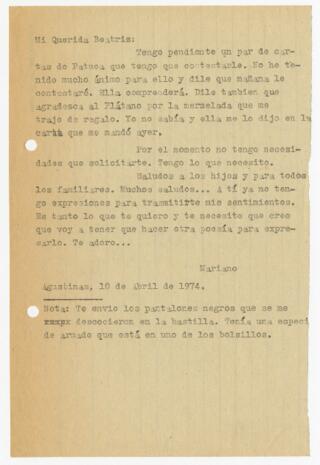 Mi Querida Beatriz:
Tengo pendiente un par de car-
tas de Patuca que tengo que contestarle. No he te-
nido mucho ánimo para ello y dile que mañana le
contestaré. Ella comprenderá. Dile tambien que
agradesca al Flátano por la mermelada que me
trajo de regalo. Yo no sabía y ella me lo dijo en la
carta que me mandó ayer.
Por el momento no tengo necesi-
dades que solicitarte. Tengo lo que necesito.
Saludos a los hijos y para todos
los familiares. Muchos saludos... A tí ya no ten-
go expresiones para transmitirte mis sentimientos.
Es tanto lo que te quiero y te necesito que creo
que voy a tener que hacer otra poesía para expre-
sarlo. Te adoro...
Mariano
Agustinas, 10 de Abril de 1974.
Nota: Te envio los pantalones negros que se me
descocieron en la bastilla. Tenía una especi
de armado que está en uno de los bolsillos.